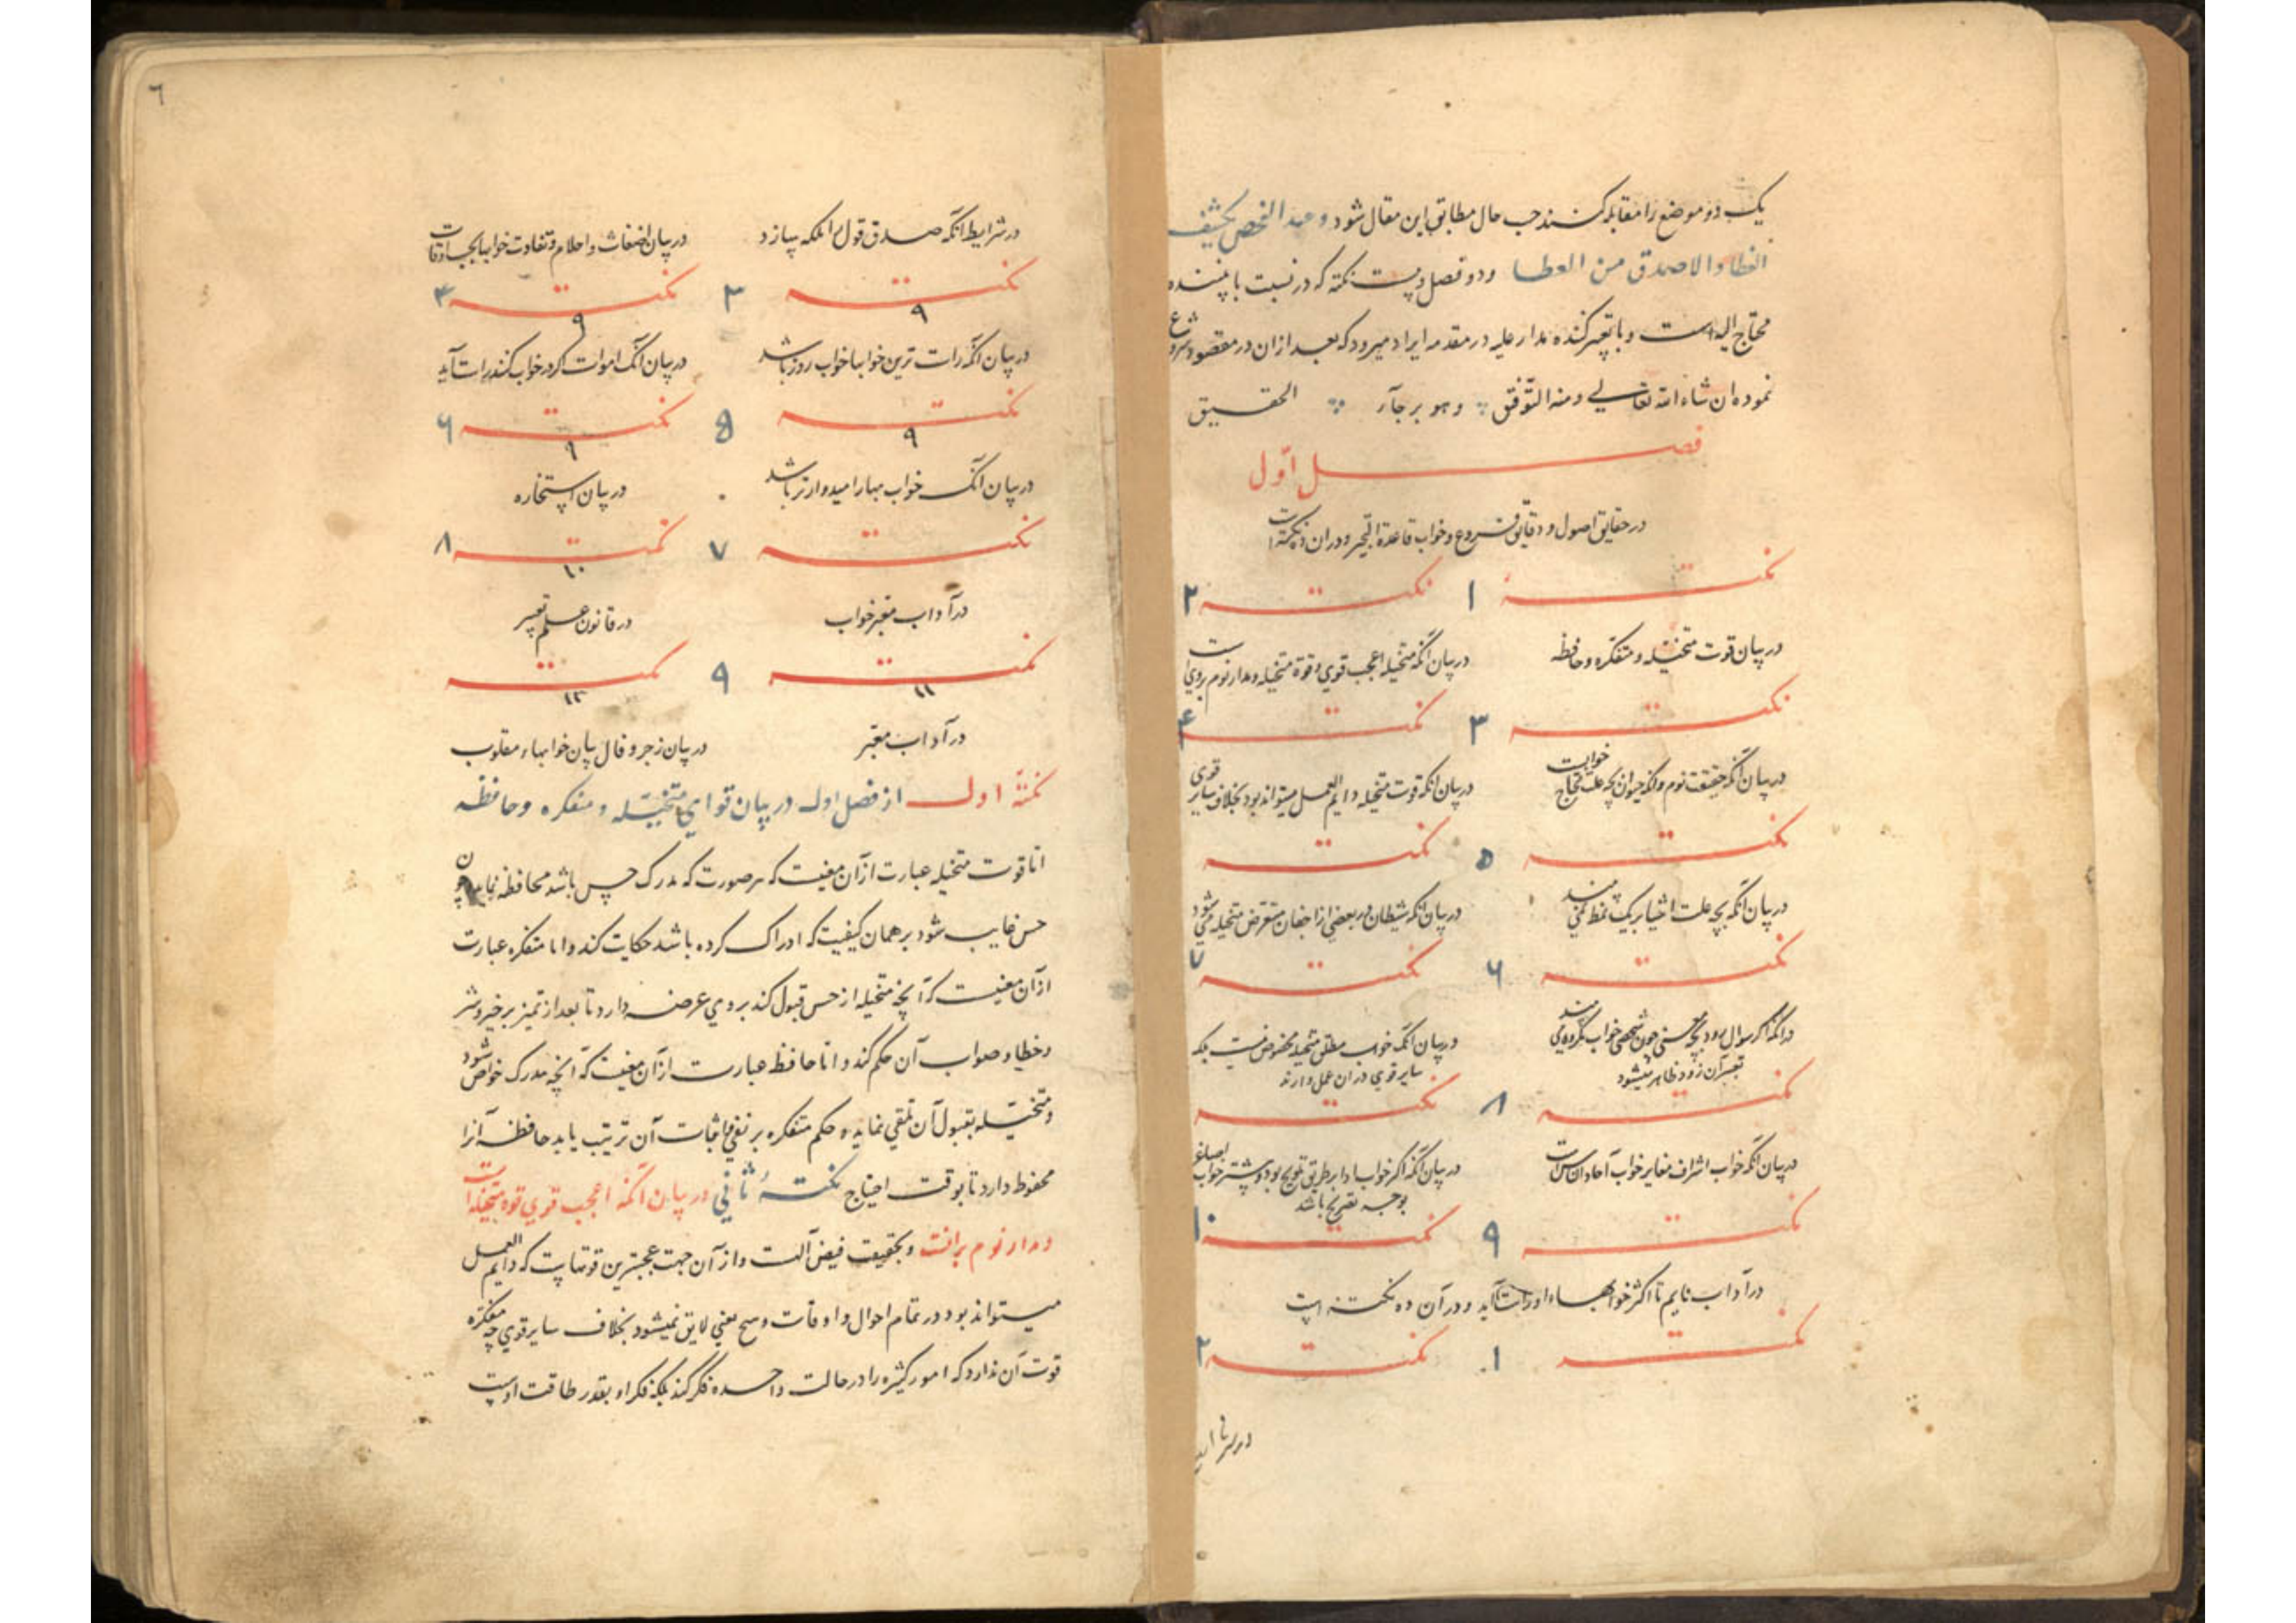 یک دو موضع را مقابله کنند حسب حال مطابق این مقال شود وعند الفحص یکشف
الغطا والاصدق من العطا ودو فصل وبیست نکته که در نسبت با بیننده
محتاج الیه است وبا تعبیر کننده مدار علیه در مقدمه ایراد میرود که بعد ازان در مقصود شروع
نموده ان شاء الله تعالی ومنه التوفیق وهو برجآر الحقیق
فصل اول
در حقایق اصول ودقایق فروع وخواب قاعدة التحیر ودران ده نکته است
نکته ۱ نکته ۲
در بیان قوت متخیله ومتفکره وحافظه
در بیان آنکه متخیله اعجب قوی وقوة متخیله ومدار نوم بروی است
نکته ۳ نکته ۴
در بیان آنکه حقیقت نوم وآنکه حیوان بچه علت محتاج خوابست
در بیان آنکه قوت متخیله دایم العمل میتواند بود بخلاف سایر قوی
نکته ۵ نکته
در بیان آنکه بچه علت اشیا بر یک نمط نمی بیند
در بیان آنکه شیطان وبعضی از اجغان متعرض متخیله می شود
نکته ۶ نکته ۷
در آنکه اگر سوال رود بچه معنی چون شخصی خواب مکروه می بیند
تعبیر آن زود ظاهر میشود
در بیان آنکه خواب مطلق متخیله مخصوص نیست بلکه
سایر قوی دران عمل دارند
نکته ۸ نکته
در بیان آنکه خواب اشراف مغایر خواب آحاد الناس است
در بیان آنکه اکثر خواب ادا بر طریق تلویح بود وبیشتر خواب
بوجه تصریح باشد
نکته ۹ نکته ۱۰
در آداب نایم تا اکثر خوابهاء او راست آید ودر آن ده نکته است
نکته ۱ نکته ۲
٦
در شرایط آنکه صدق قول را ملکه سازد
در بیان اضغاث واحلام وتفاوت خوابها بحسب اوقات
نکته ۳ نکته ۴
۹ ۹
در بیان آنکه راست ترین خوابها خواب روز باشد
در بیان آنک اموات کرد خواب کنند راست آید
نکته ۵ نکته ۶
۹ ۹
در بیان آنک خواب بهار امیدوارتر باشد
در بیان استخاره
نکته ۷ نکته ۸
۱۰
در آداب معبر خواب
در قانون علم تعبیر
نکته ۹ نکته
۱۱ ۱۲
در آداب معبر
در بیان زجر وفال بیان خوابهاء مقلوب
نکتهٔ اول از فصل اول در بیان قوای متخیله ومتفکره وحافظه
اما قوت متخیله عبارت از آن معنیست که هر صورت که مدرک حس باشد محافظه نماید چون
حس غایب شود بر همان کیفیت که ادراک کرده باشد حکایت کند واما متفکره عبارت
از آن معنیست که آنچه متخیله از حس قبول کند بروی عرضه دارد تا بعد از تمیز بر خیر وشر
وخطا وصواب آن حکم کند واما حافظه عبارت از آن معنیست که آنچه مدرک خواص شود
ومتخیله بقبول آن تلقی نماید وحکم متفکره بر نفی واثبات آن ترتیب یابد حافظه آنرا
محفوظ دارد تا بوقت احتیاج نکتهٔ ثانی در بیان آنکه اعجب قوی قوه متخیله است
ومدار نوم برانست وبحقیقت فیض آلهست واز آن جهت عجبترین قوتهایست که دایم العمل
میتواند بود در تمام احوال واوقات وهیچ معنی لایق نمیشود بخلاف سایر قوی چه متفکره
قوت آن ندارد که امور کثیره را در حالت واحده فکر کند بلکه فکر او بقدر طاقت اوست